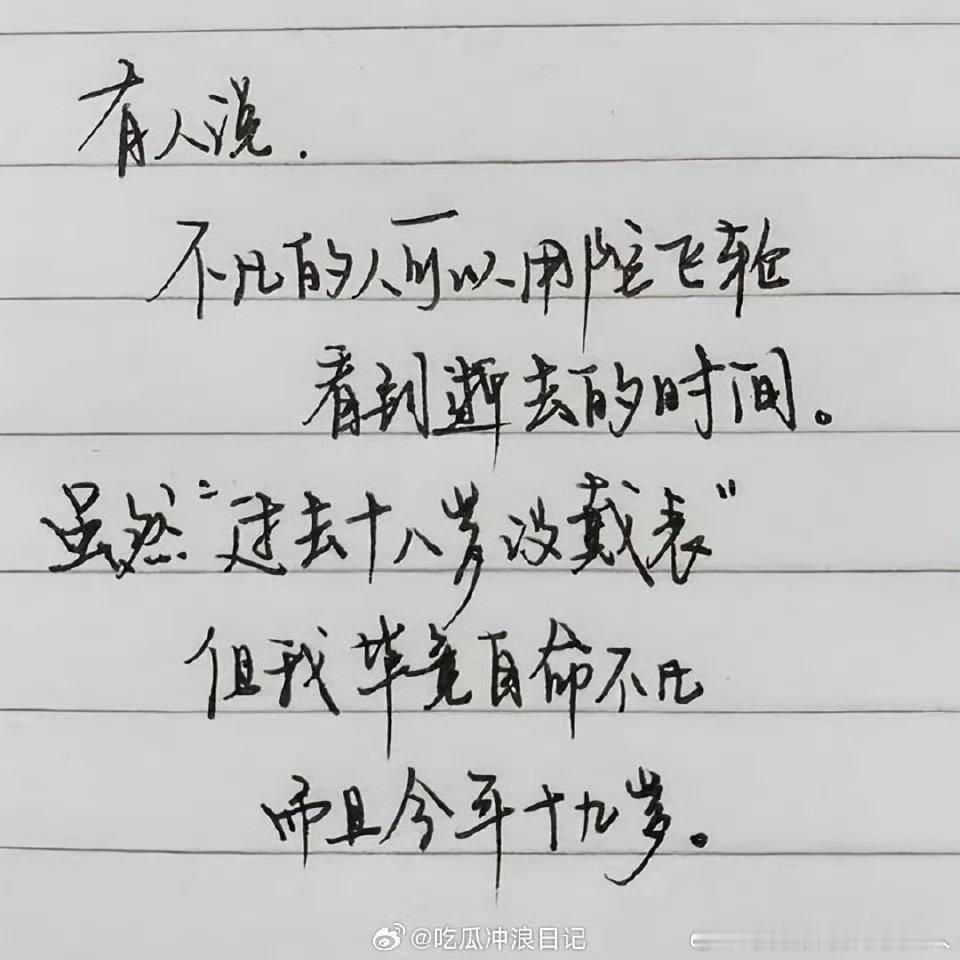 有人说.
不凡的人可以用陀飞轮
看到逝去的时间。
虽然"过去十八岁没戴表"
但我毕竟自命不凡
而且今年十九岁。
@吃瓜冲浪日记